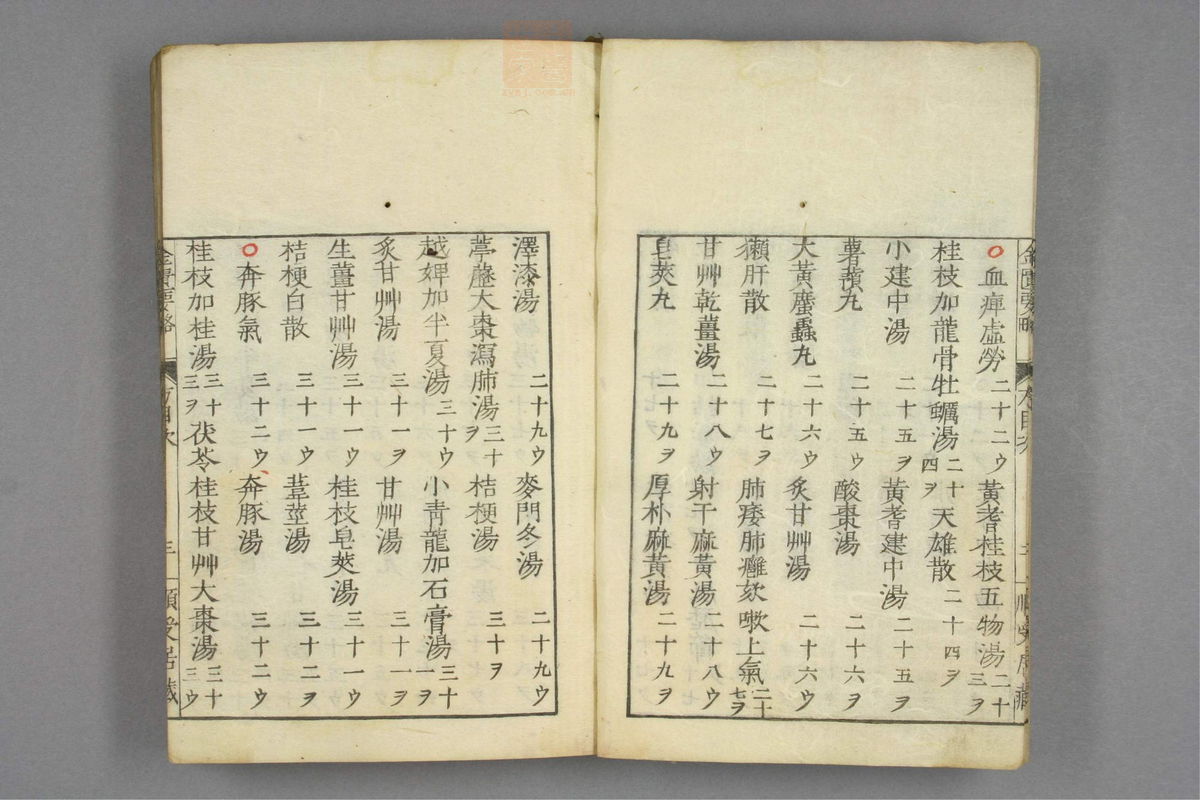 ○血痺虛勞 二十二ウ 黃耆桂枝五物湯 二十三ヲ
桂枝加龍骨牡蠣湯 二十四ヲ 天雄散 二十四ヲ
小建中湯 二十五ヲ 黃耆建中湯 二十五ヲ
薯蕷丸 二十五ウ 酸棗湯 二十六ヲ
大黃䗪蟲丸 二十六ウ 炙甘艸湯 二十六ウ
獺肝散 二十七ヲ 肺痿肺癰欬嗽上氣 二十七ヲ
甘艸乾薑湯 二十八ウ 射干麻黃湯 二十八ウ
皂莢丸 二十九ヲ 厚朴麻黃湯 二十九ヲ
澤漆湯 二十九ウ 麥門冬湯 二十九ウ
葶藶大棗瀉肺湯 三十ヲ 桔梗湯 三十ヲ
越婢加半夏湯 三十ウ 小青龍加石膏湯 三十一ヲ
炙甘艸湯 三十一ヲ 甘艸湯 三十一ヲ
生薑甘艸湯 三十一ウ 桂枝皂莢湯 三十一ウ
桔梗白散 三十一ウ 葦莖湯 三十二ヲ
○奔豚氣 三十二ウ 奔豚湯 三十二ウ
桂枝加桂湯 三十三ヲ 茯苓桂枝甘艸大棗湯 三十三ウ
方目次 三 順受居藏